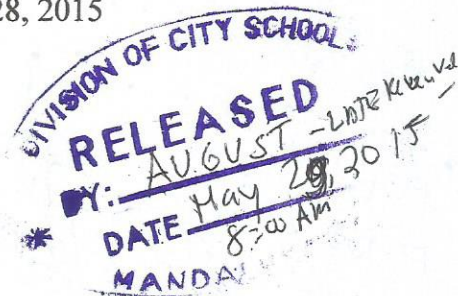 28, 2015
DIVISION OF CITY SCHOOLS
RELEASED
BY: AUGUST - LATE
DATE May 29, 2015
8:00 AM
MANDA